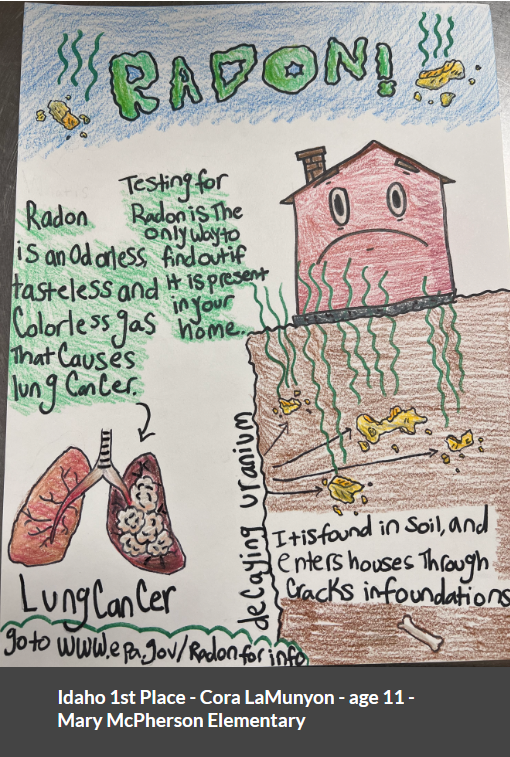 RADON!
Radon
is an Odorless
tasteless and
Colorless gas
That Causes
lung CanCer.
Testing for
Radon is The
only way to
find out if
it is present
in your
home...
decaying uranium
It is found in Soil, and
enters houses Through
Cracks in foundations
Lung CanCer
go to www.epa.gov/Radon for info
Idaho 1st Place - Cora LaMunyon - age 11 -
Mary McPherson Elementary